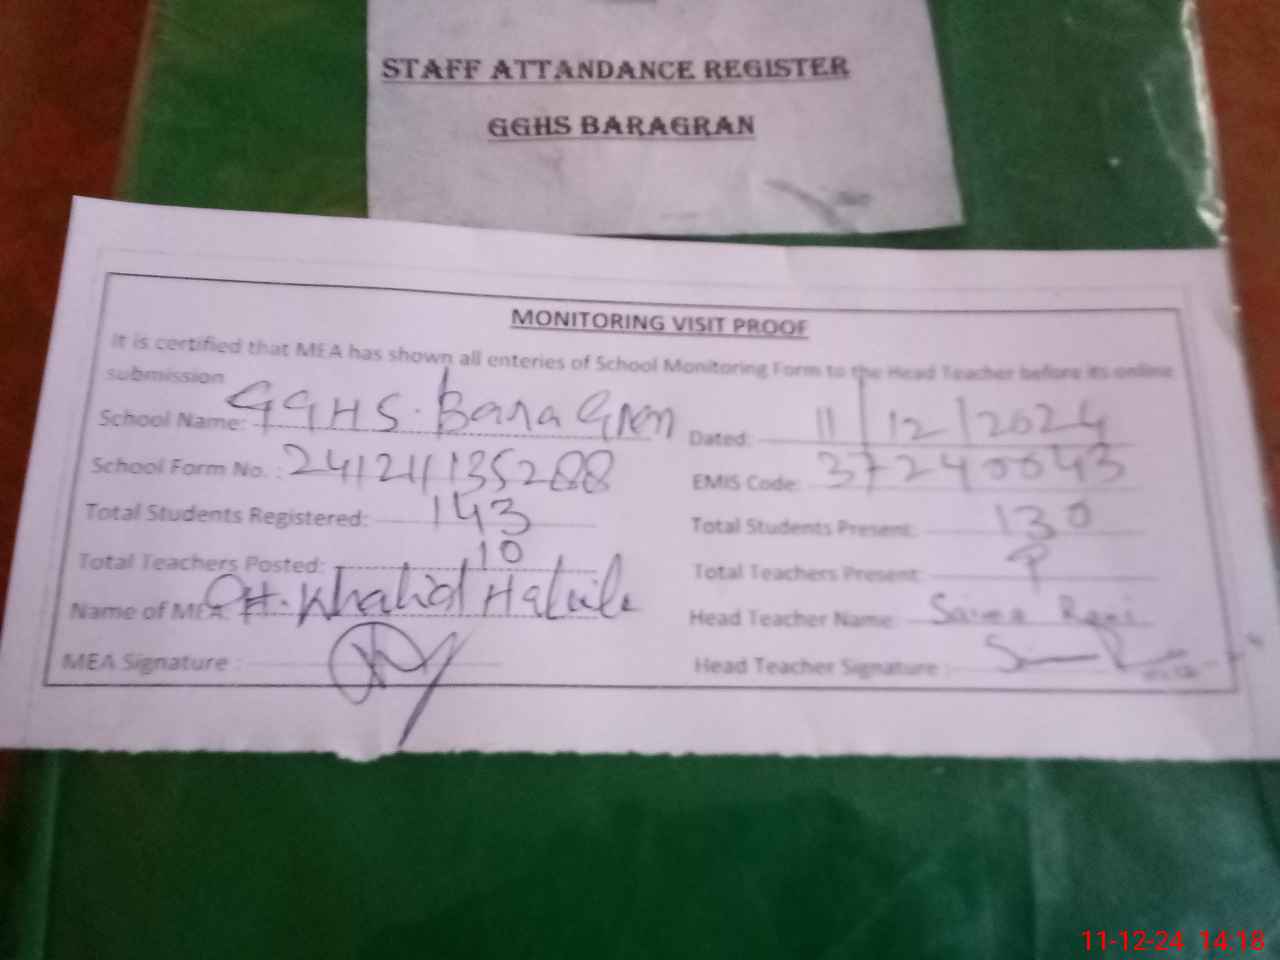 STAFF ATTANDANCE REGISTER
GGHS BARAGRAN
MONITORING VISIT PROOF
It is certified that MEA has shown all enteries of School Monitoring Form to the Head Teacher before its online
submission
School Name: GGHS. Bara Gran Dated: 11/12/2024
School Form No. : 241211135288 EMIS Code: 37240043
Total Students Registered: 143 Total Students Present: 130
Total Teachers Posted: 10 Total Teachers Present: 9
Name of MEA: CH. Khalid Head Teacher Name: Saima Rani
MEA Signature : Head Teacher Signature :
11-12-24 14:18